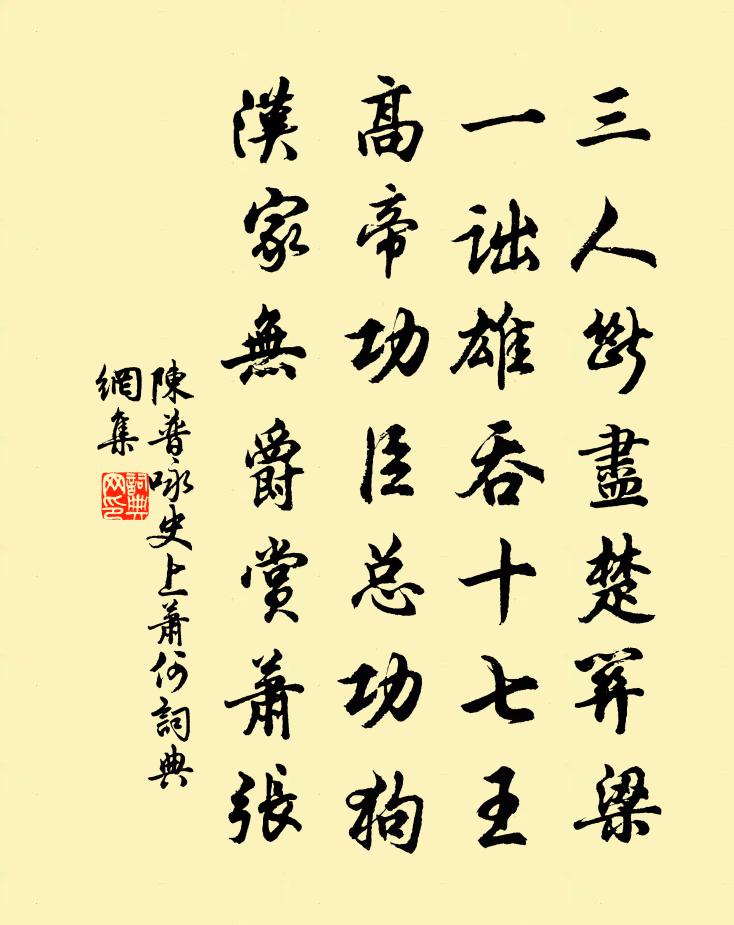 三人斷盡楚羿梁
一詘雄吞十七王
高帝功臣总功狗
漢家無爵賞蕭張
陳普咏史上蕭何詞典
網集
詞典
网印